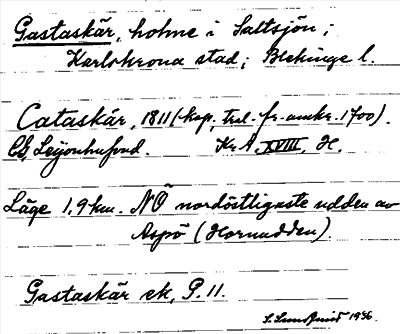 Gastaskär, holme i Saltsjön;
Karlskrona stad; Blekinge l.
Cataskär, 1811 (kop., trol. fr. omkr. 1700).
CG, Leijonhufvud. Kr.A. XVIII, H.
Läge 1,9 km. NÖ nordöstligaste udden av
Aspö (Hornudden).
Gastaskär ek, P. 11.
1936